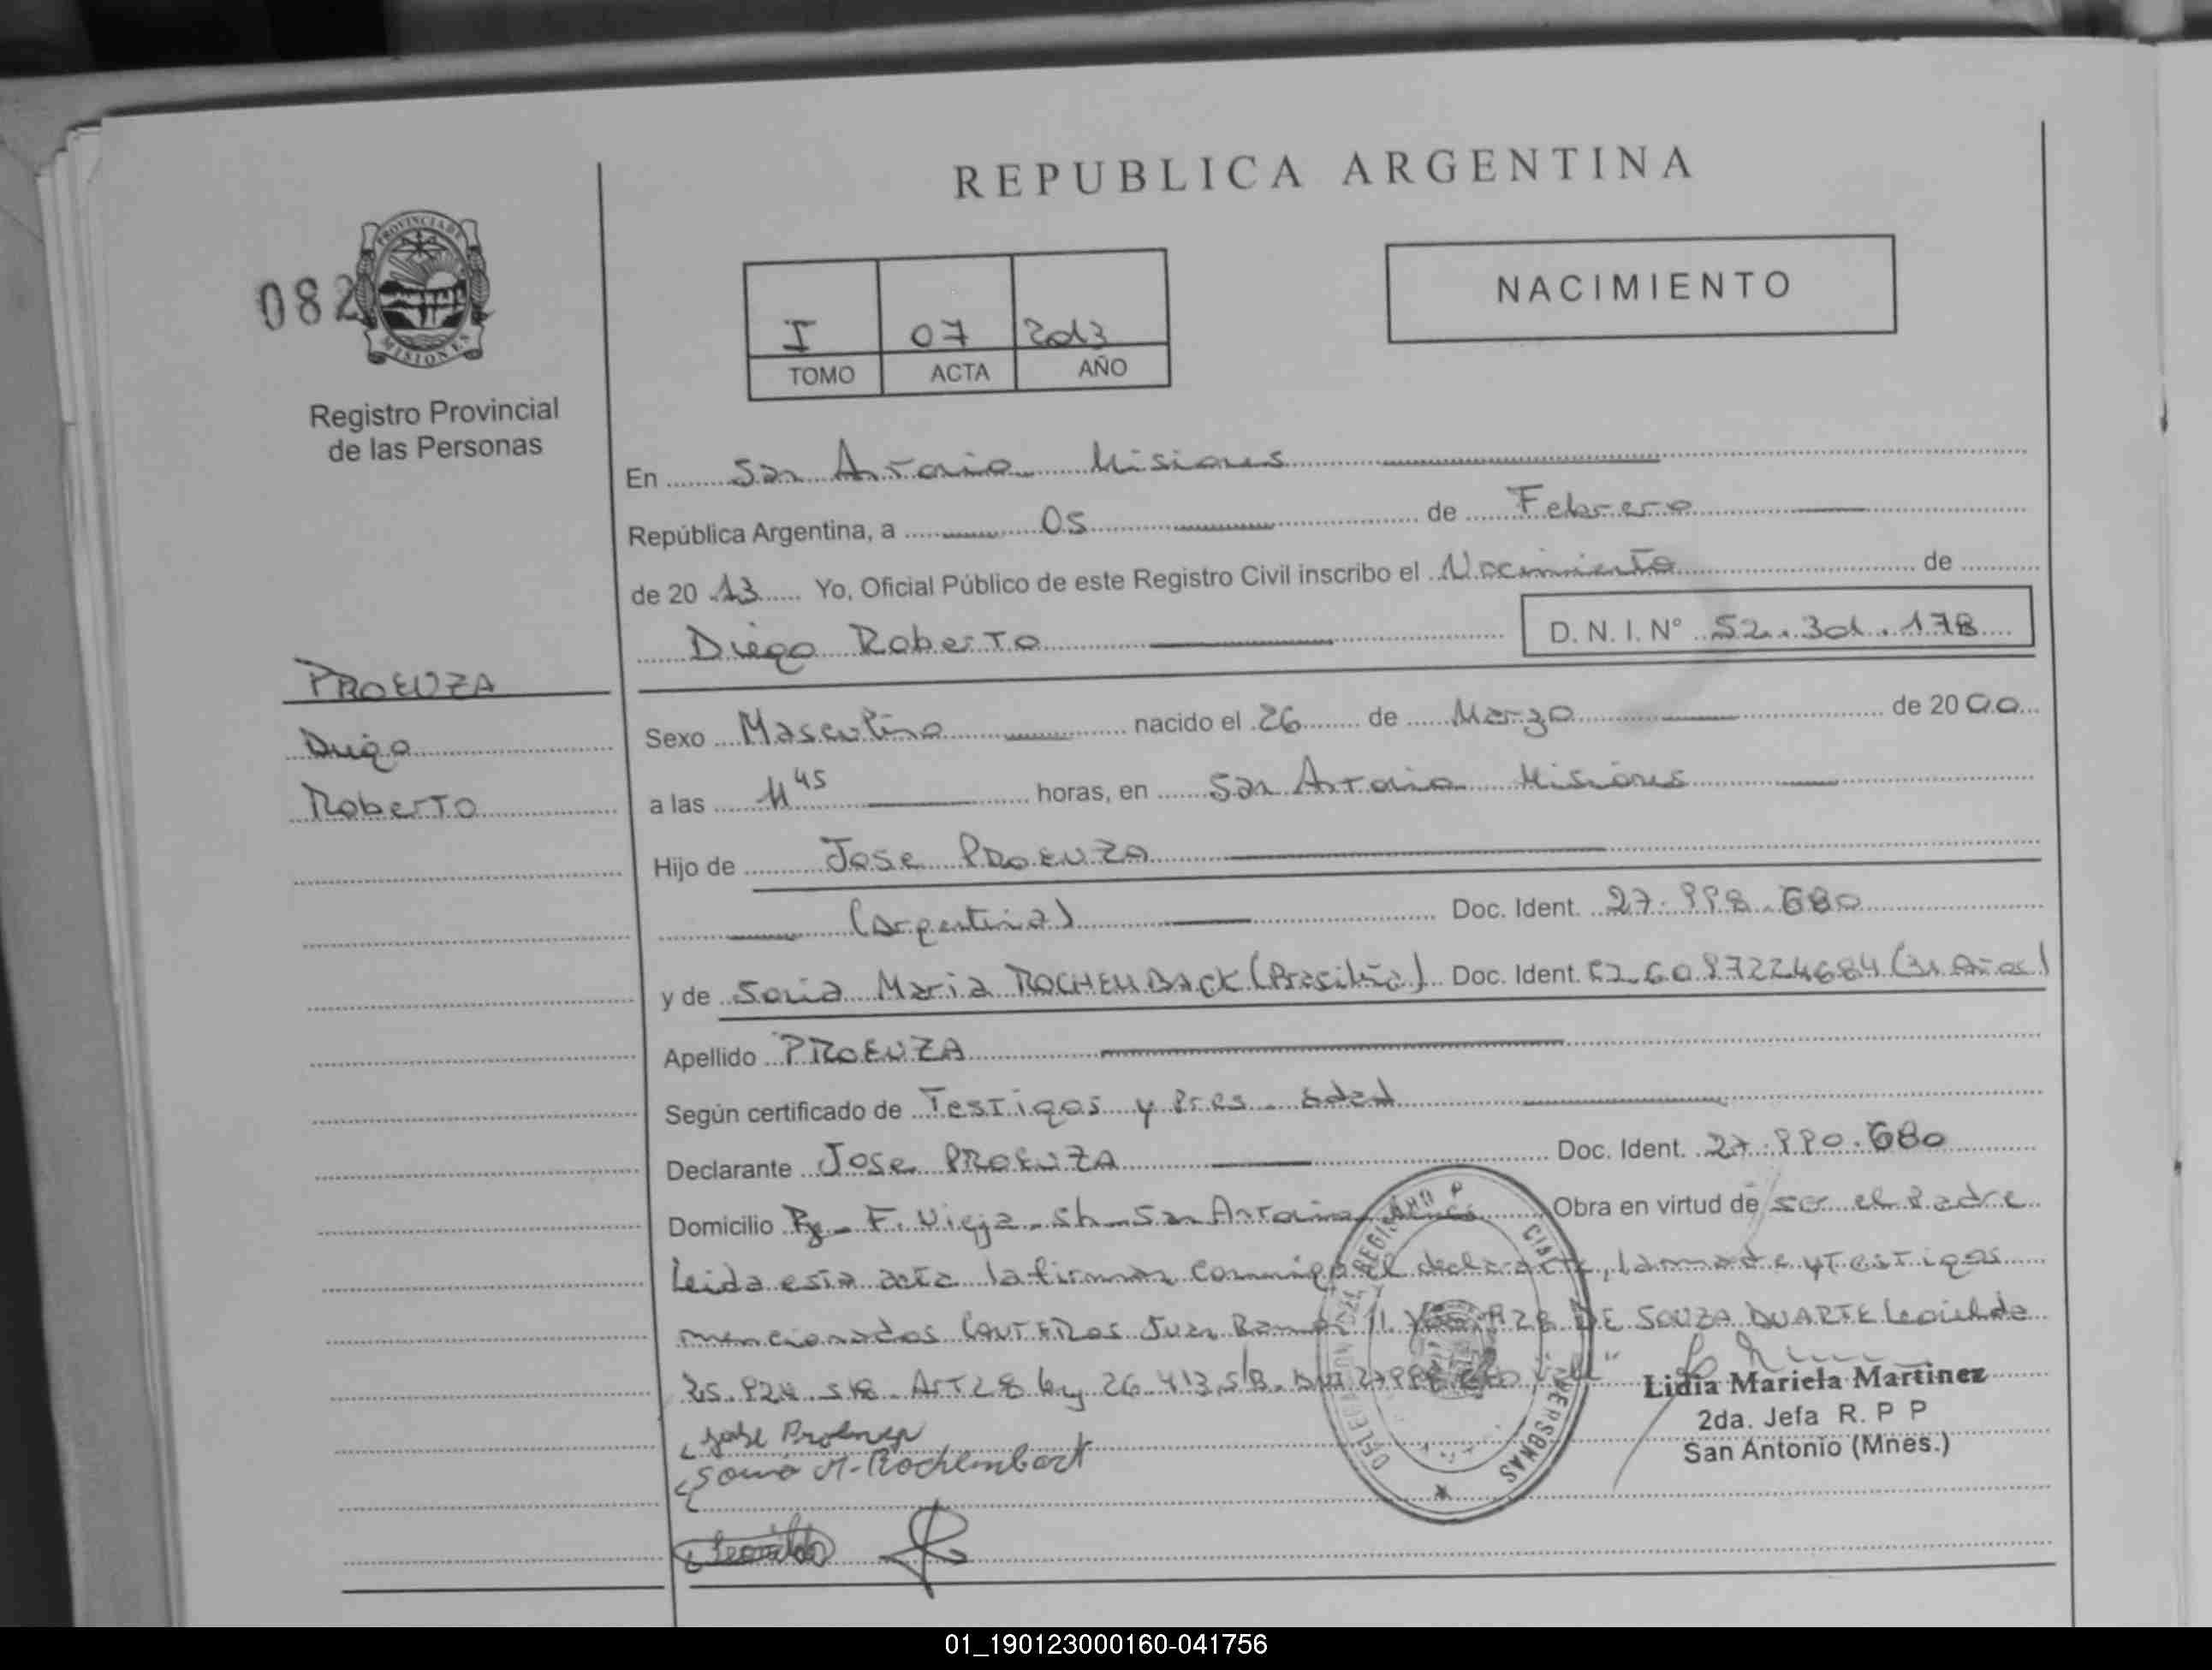 REPUBLICA ARGENTINA
082
PROVINCIA DE
MISIONES
Registro Provincial
de las Personas
I 07 2013
TOMO ACTA AÑO
NACIMIENTO
En San Antonio Misiones
República Argentina, a 05 de Febrero
de 20 13 Yo, Oficial Público de este Registro Civil inscribo el Nacimiento de
Diego Roberto D. N. I. N° 52.301.178
PROENZA
Diego
Roberto
Sexo Masculino nacido el 26 de Marzo de 20 00
a las 11 45 horas, en San Antonio Misiones
Hijo de Jose PROENZA
(Argentina) Doc. Ident. 27.998.680
y de Sonia Maria ROCHEMBACK (Brasileña) Doc. Ident. 6097224684 (31 Años)
Apellido PROENZA
Según certificado de Testigos y Pres. Edad
Declarante Jose PROENZA Doc. Ident. 27.990.680
Domicilio F. Vieja - San Antonio Obra en virtud de ser el Padre
Leida esta acta la firman conmigo el declarante, la madre y testigos
mencionados Juan DE SOUZA DUARTE Leonilda
Art 28 ley 26.413
Jose Proenza
Sonia M. Rochemback
Leonilda
Lidia Mariela Martinez
2da. Jefa R. P P
San Antonio (Mnes.)
01_190123000160-041756